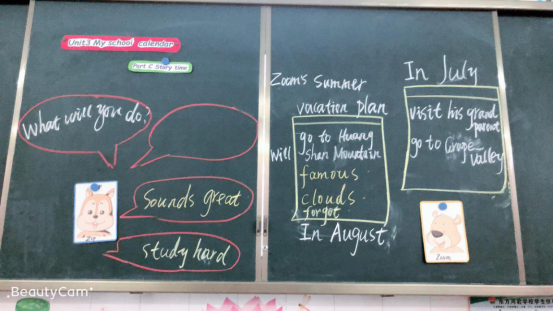 Unit3 My school calendar
Part C Story time
What will you do?
Sounds great
study hard
Zip
Zoom's Summer
vacation plan
will
go to Huang
Shan Mountain
famous
clouds
forgot
In August
In July
visit his grand
parent
go to Grape
valley
Zoom
BeautyCam